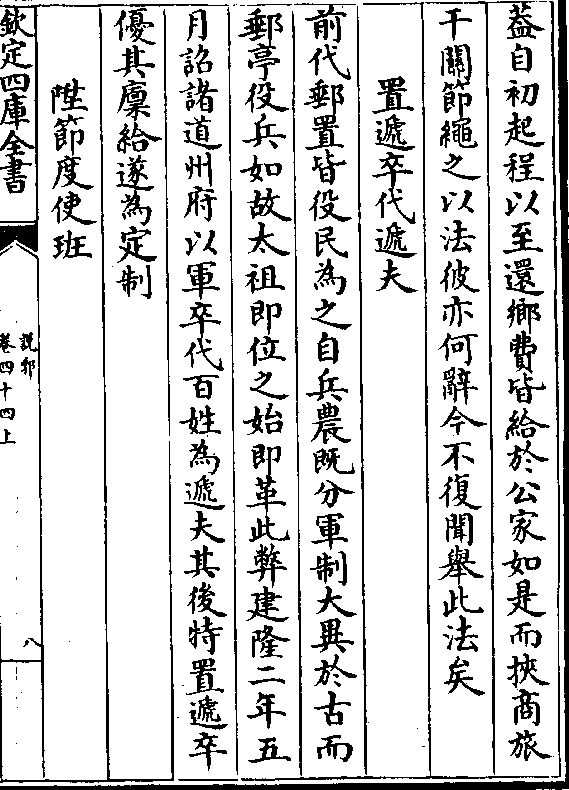 葢自初起程以至還鄉費皆給於公家如是而挾商旅
干關節繩之以法彼亦何辭今不復聞舉此法矣
置遞卒代遞夫
前代郵置皆役民為之自兵農既分軍制大異於古而
郵亭役兵如故太祖即位之始即革此弊建隆二年五
月詔諸道州府以軍卒代百姓為遞夫其後特置遞卒
優其廩給遂為定制
陞節度使班
欽定四庫全書
說郛
卷四十四上
八